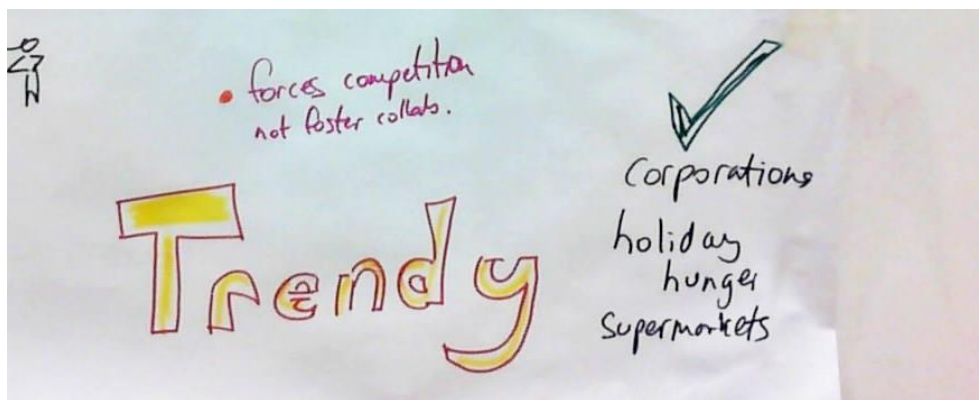 • forces competition
not foster collab.
Trendy
Corporations
holiday
hunger
supermarkets